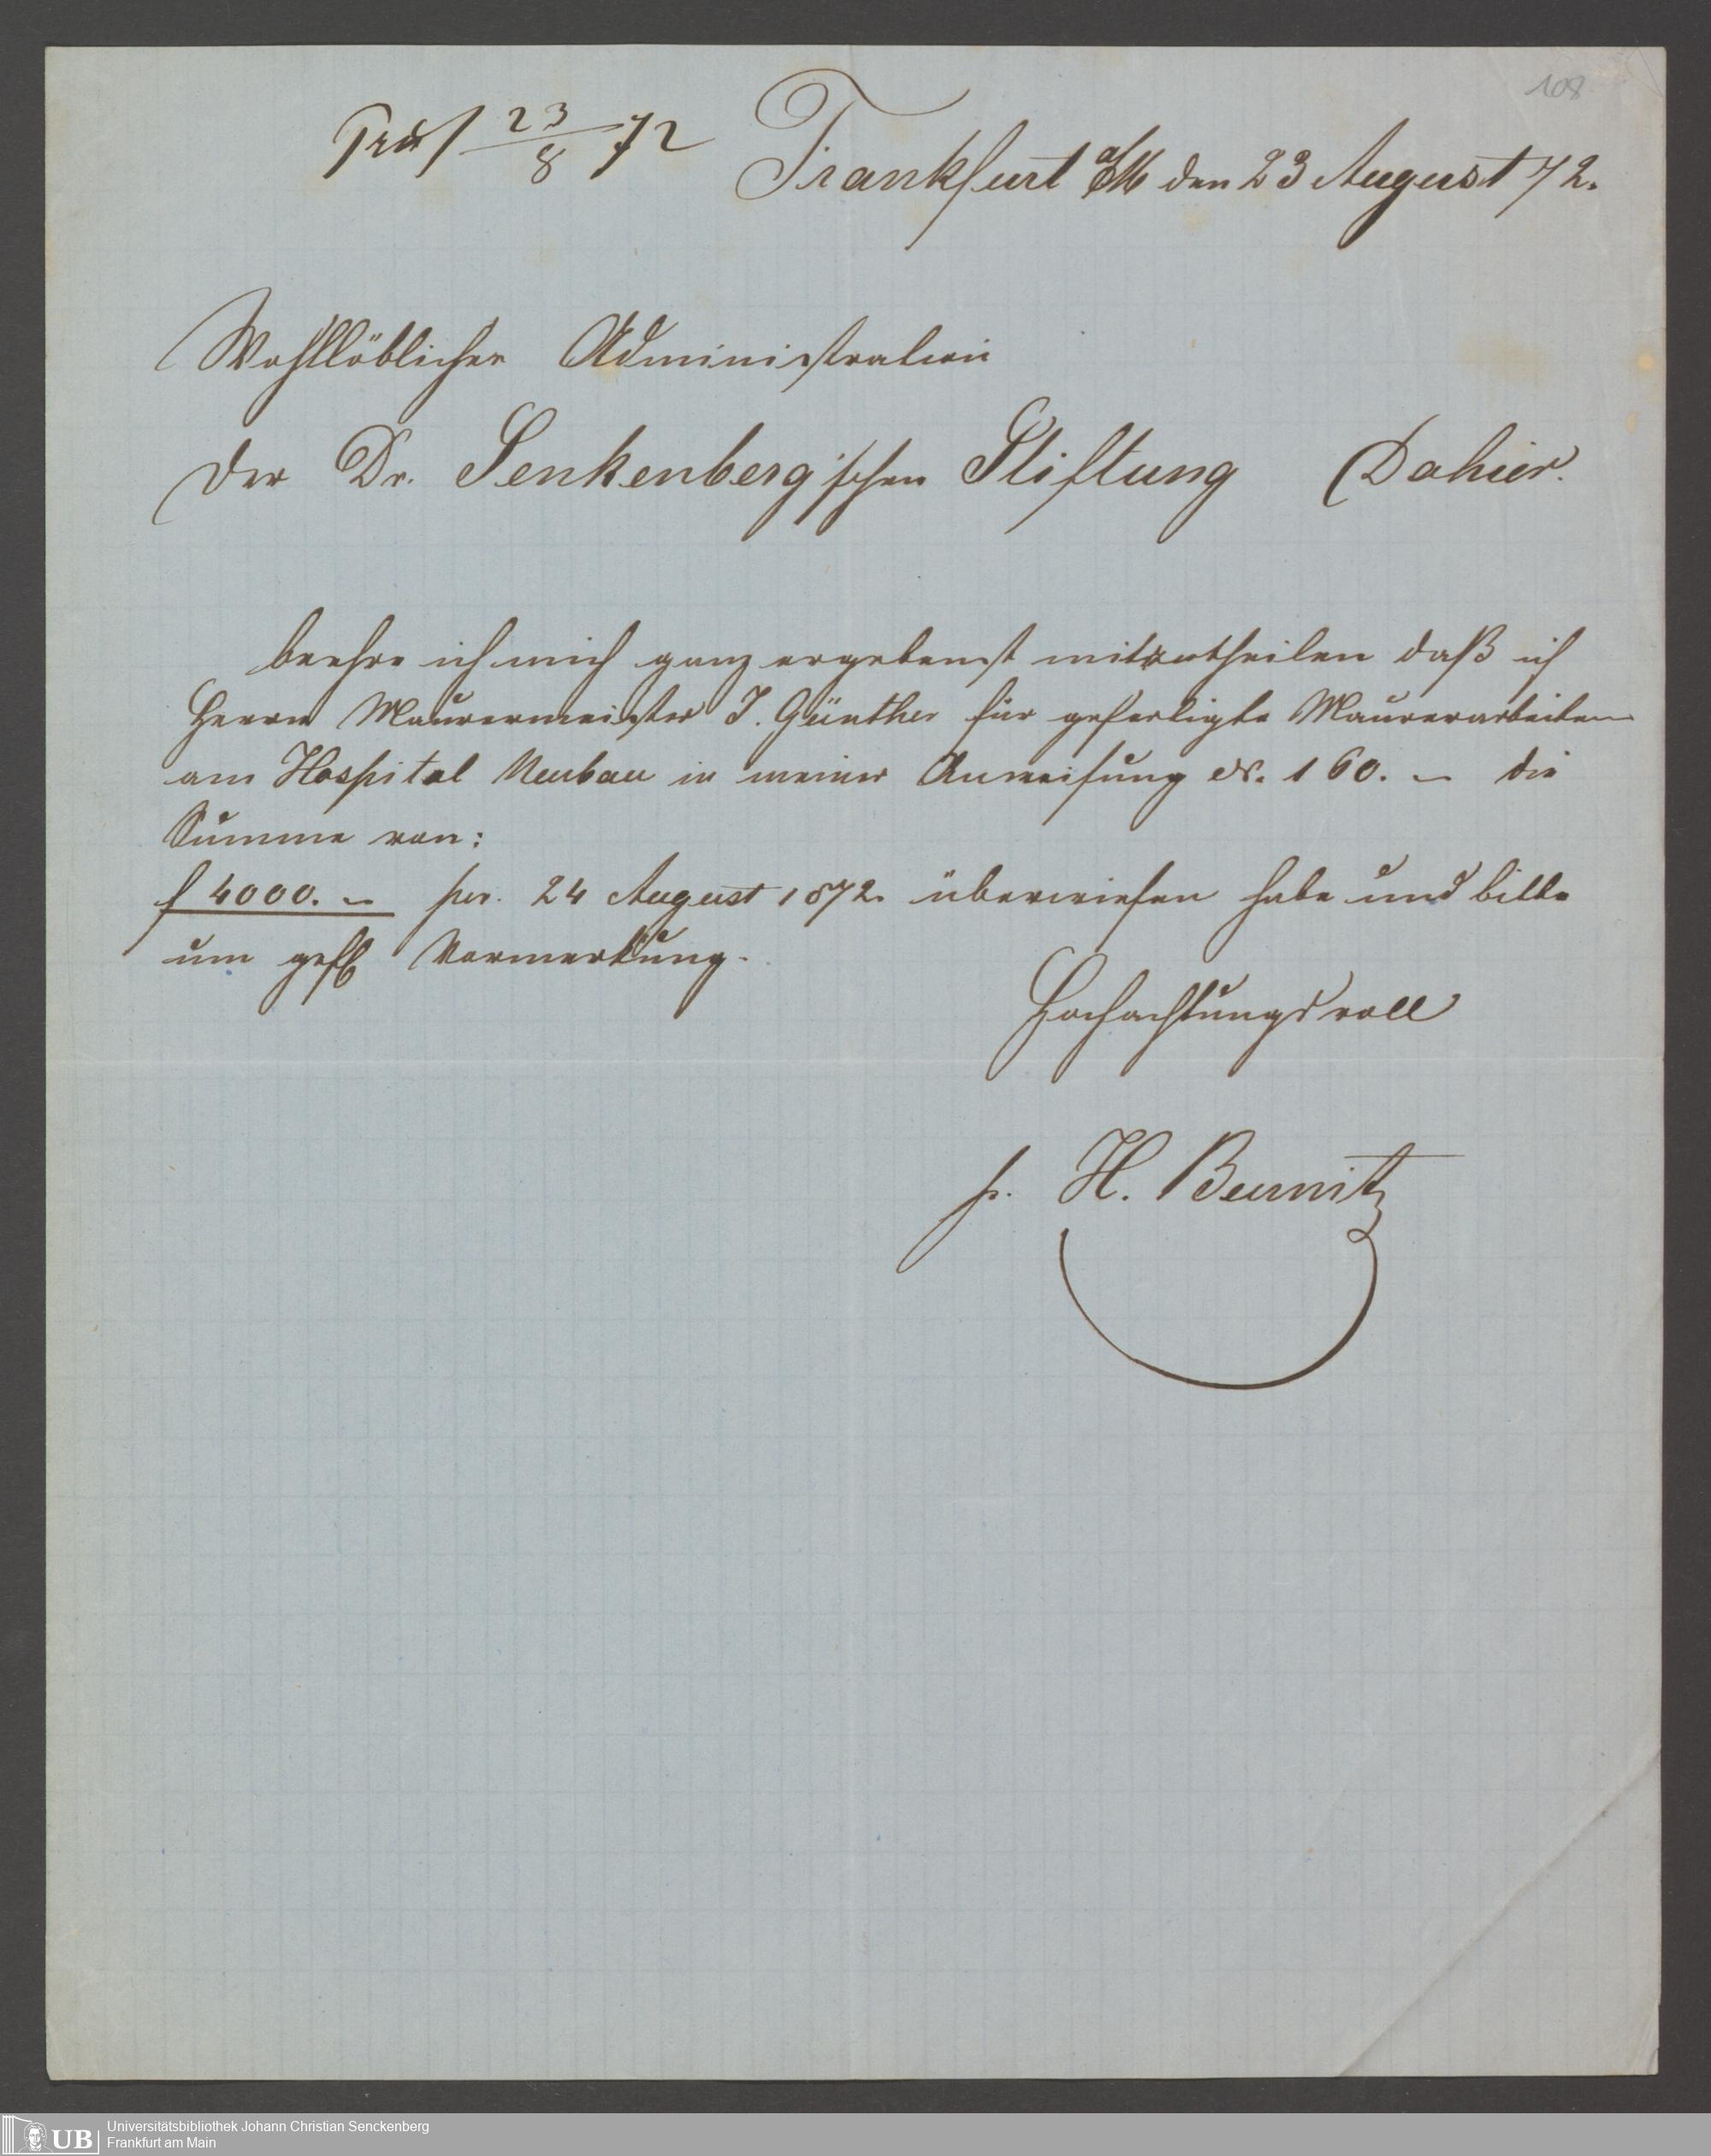 108
Präs 23/8 72
Frankfurt a/M den 23 August 72.
Wohllöblicher Administration
der Dr. Senkenberg'schen Stiftung Dahier.
beehre ich mich ganz ergebenst mitzutheilen daß ich
Herrn Maurermeister J. Günther für gefertigte Maurerarbeiten
am Hospital Neubau in meiner Anweisung No. 160. – die
Summe von:
f 4000. – per. 24 August 1872. überwiesen habe und bitte
um gefl Vormerkung.
Hochachtungsvoll
p. H. Burnitz
UB
Universitätsbibliothek Johann Christian Senckenberg
Frankfurt am Main